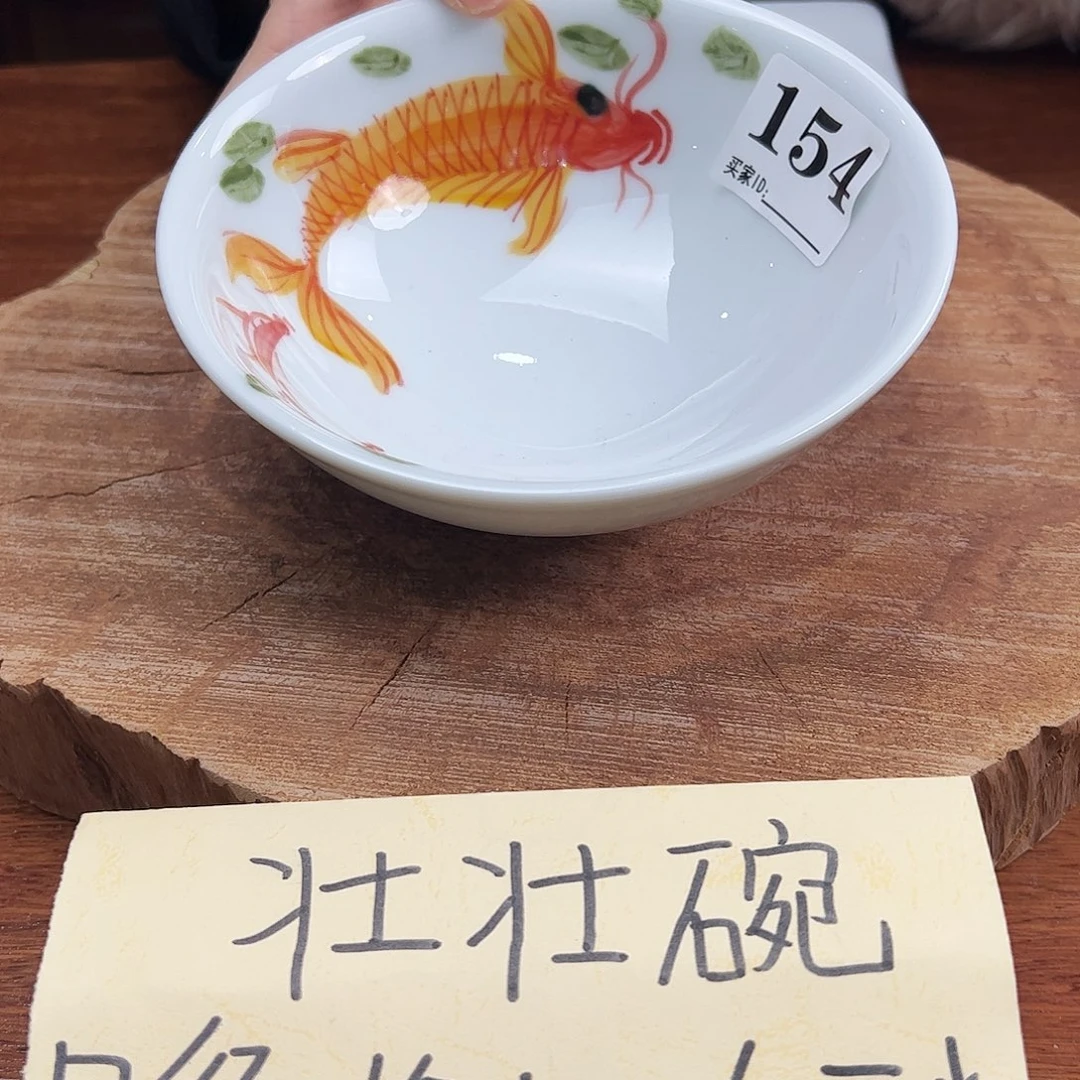 154
买家ID:
壮壮碗